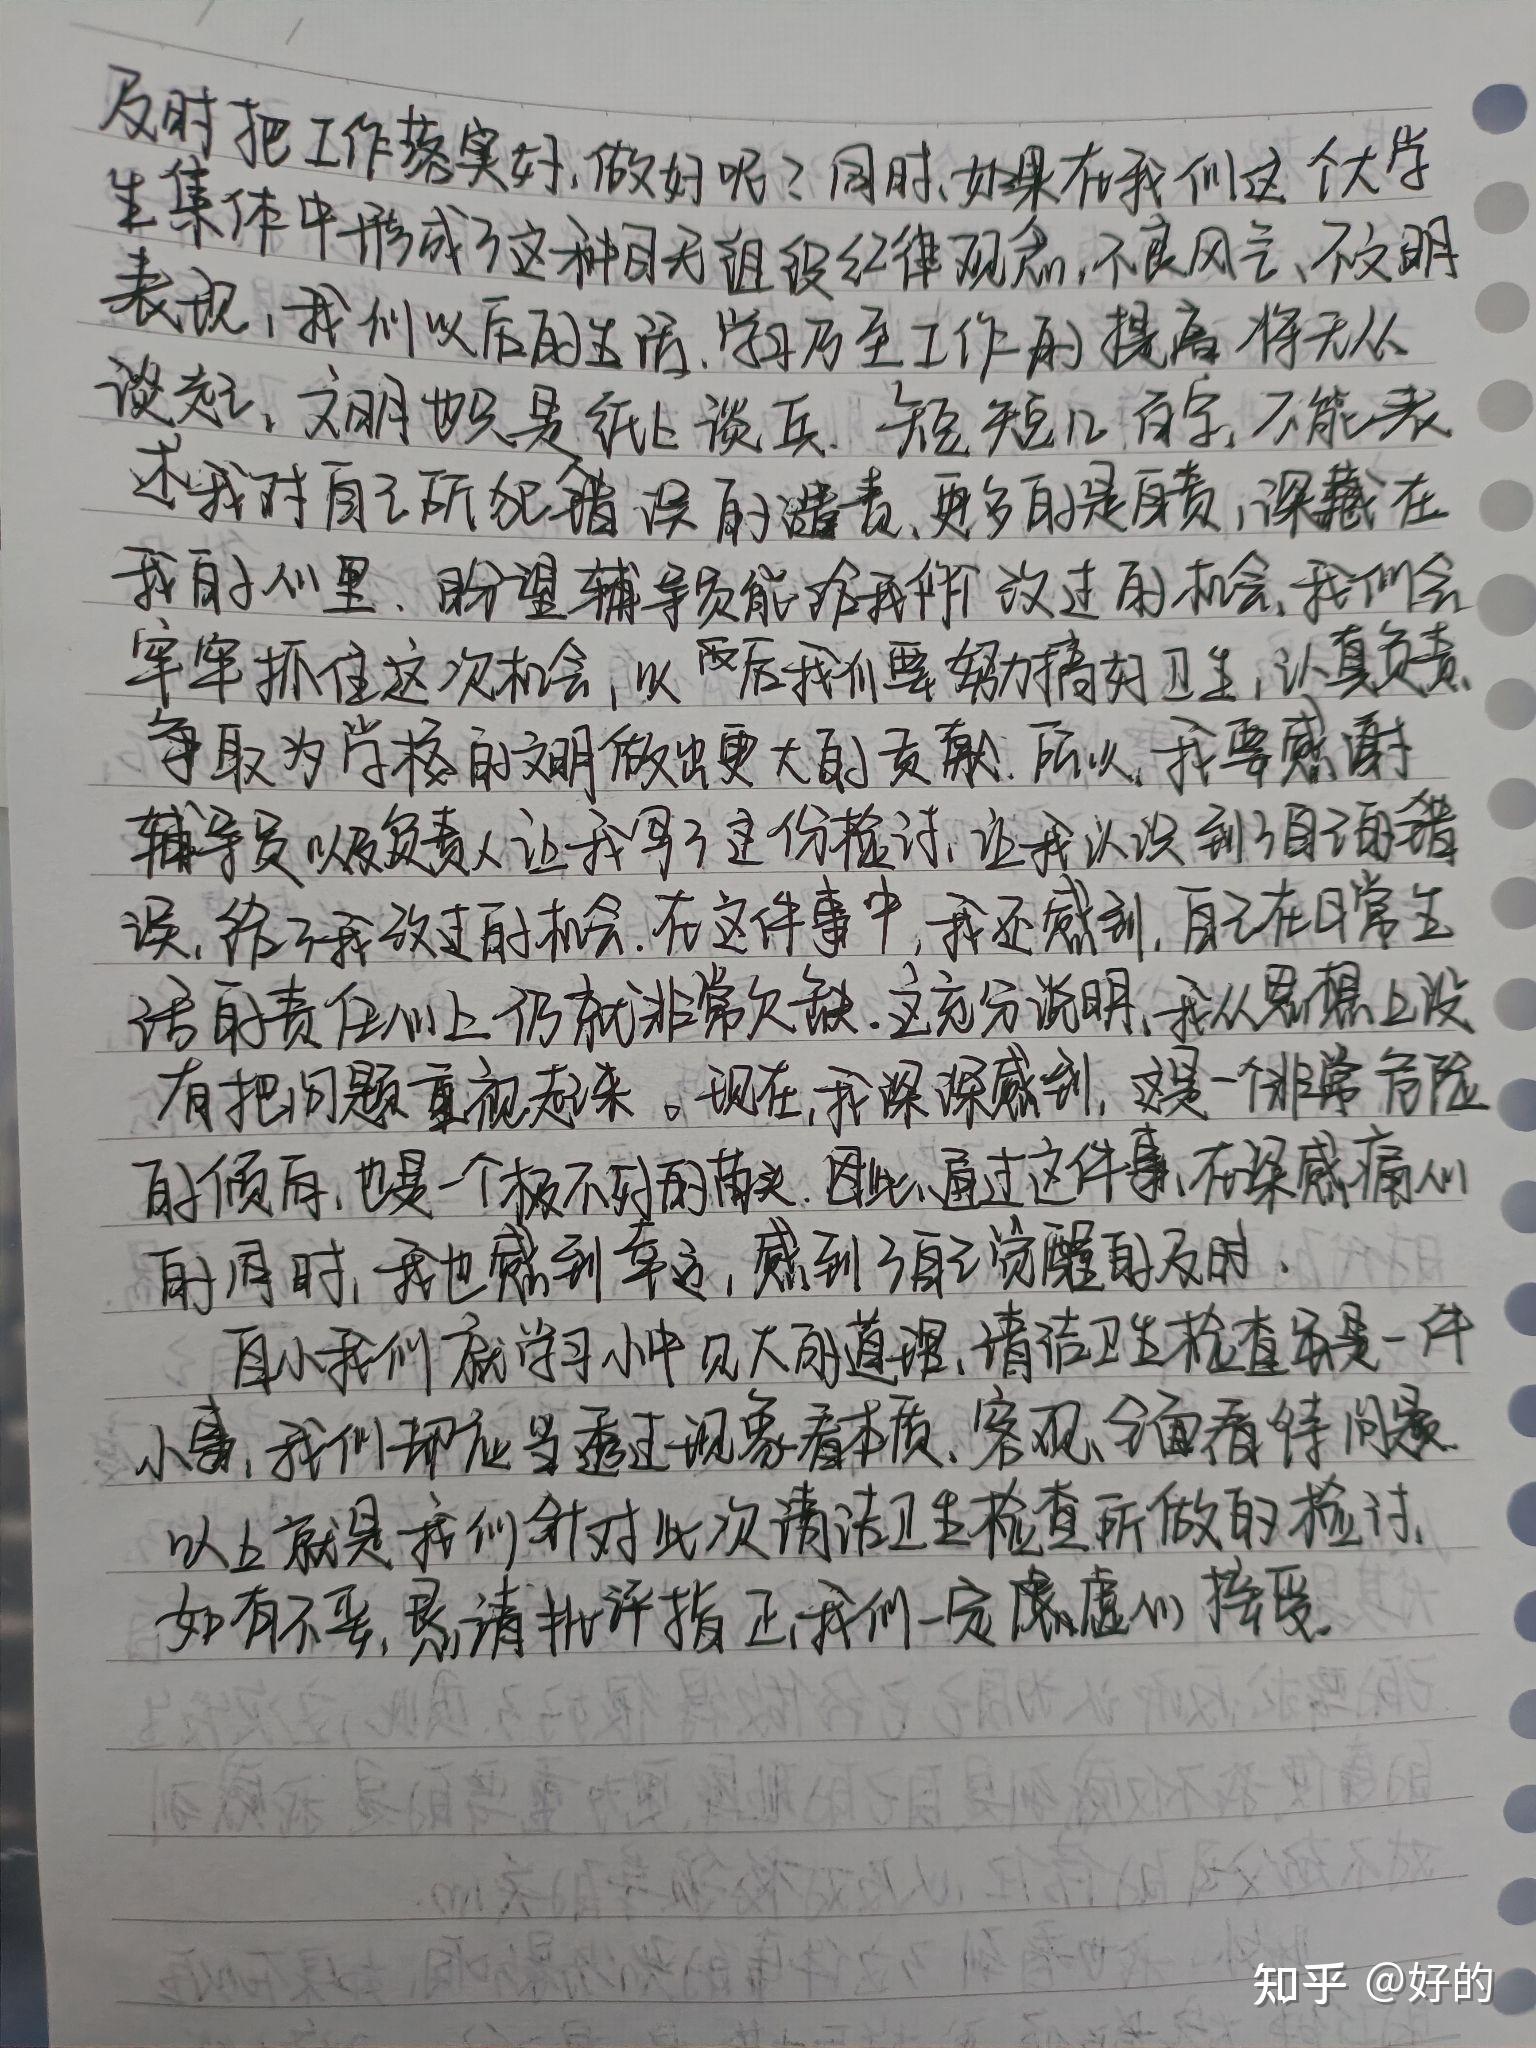 及时把工作落实好、做好呢？同时，如果在我们这个大学
生集体中形成了这种目无组织纪律观念，不良风气、不文明
表现，我们以后的生活、学习乃至工作的提高将无从
谈起，文明也只是纸上谈兵．短短几百字，不能表
述我对自己所犯错误的谴责，更多的是自责，深藏在
我的心里．盼望辅导员能给我们改过的机会，我们会
牢牢抓住这次机会，以后我们要努力搞好卫生，认真负责，
争取为学校的文明做出更大的贡献．所以，我要感谢
辅导员以及负责人让我写了这份检讨，让我认识到了自己的错
误，给了我改过的机会．在这件事中，我还感到，自己在日常生
活的责任心上仍就非常欠缺．这充分说明，我从思想上没
有把问题重视起来。现在，我深深感到，这是一个非常危险
的倾向，也是一个极不好的苗头．因此，通过这件事，在深感痛心
的同时，我也感到幸运，感到了自己觉醒的及时．
自小我们就学习小中见大的道理，清洁卫生检查虽是一件
小事，我们却应当透过现象看本质，客观、全面看待问题．
以上就是我们针对此次清洁卫生检查所做的检讨，
如有不妥，恳请批评指正，我们一定虚心接受．
知乎 @好的